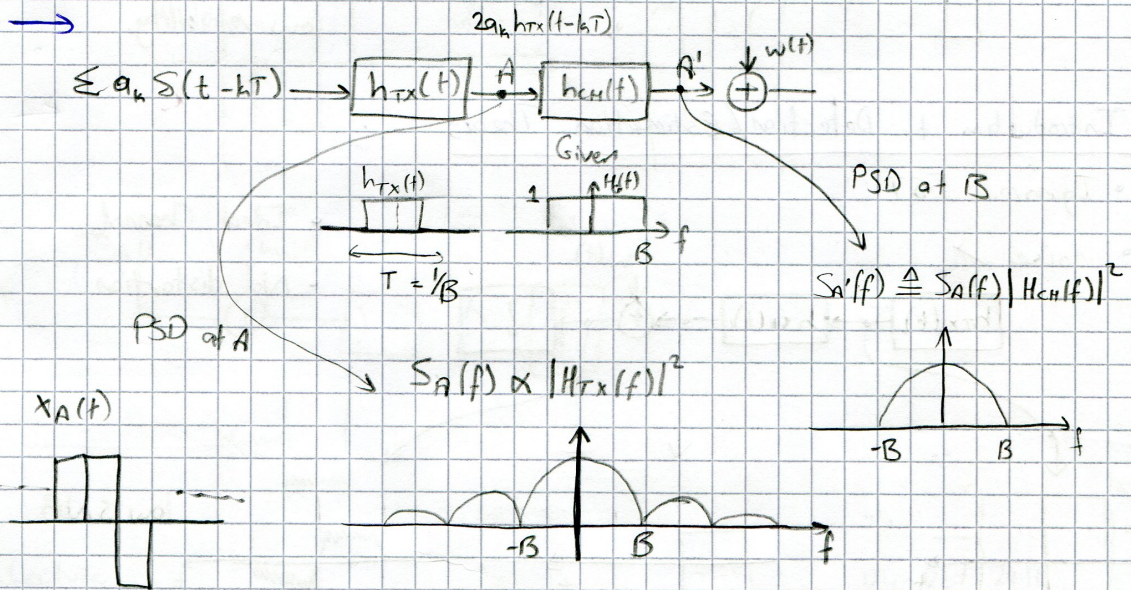 2aₖ hTX(t-kT)
Σ aₖ δ(t-kT) hTX(t) A hCH(t) A' + w(t)
Given
hTX(t) 1 H(f) f
B
T = 1/B
PSD at B
SA'(f) ≜ SA(f)|HCH(f)|²
-B B f
PSD at A
SA(f) ∝ |HTX(f)|²
xA(t)
-B B f